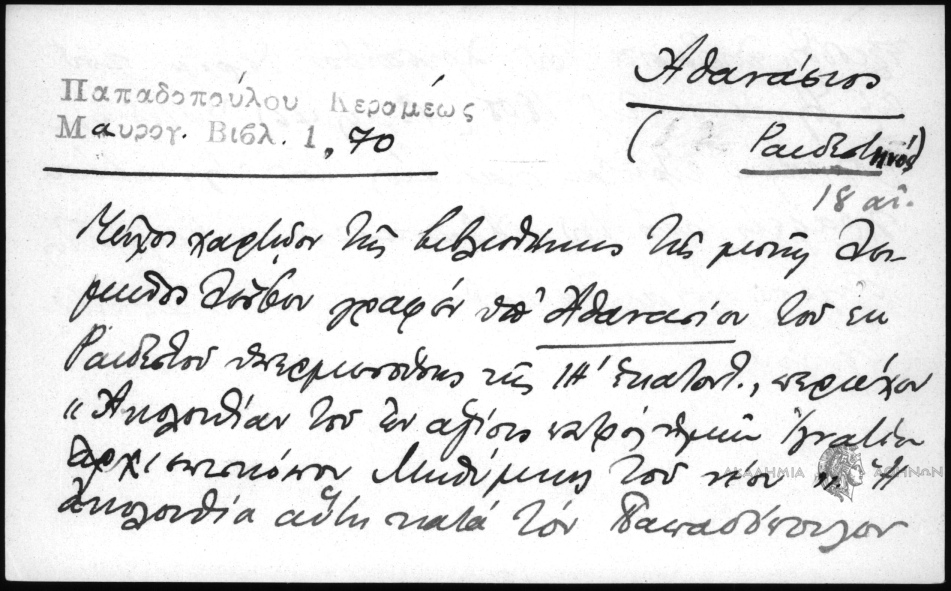 Παπαδοπούλου Κεραμέως
Μαυρογ. Βιβλ. 1, 70
Ἀθανάσιος
(Ραιδεστηνός)
18 αἰ.
χαρτῷον τῆς βιβλιοθήκης τῆς μονῆς
γραφὲν ὑπὸ Ἀθανασίου τοῦ ἐκ
Ραιδεστοῦ τῆς ΙΗ' ἑκατοντ., περιέχον
"Ἀκολουθίαν τοῦ ἐν ἁγίοις πατρὸς ἡμῶν Ἰγνατίου
ἀρχιεπισκόπου Μηθύμνης τοῦ νέου". Ἡ
ἀκολουθία αὕτη κατὰ τὸν Παπαδόπουλον
ΑΚΑΔΗΜΙΑ ΑΘΗΝΩΝ